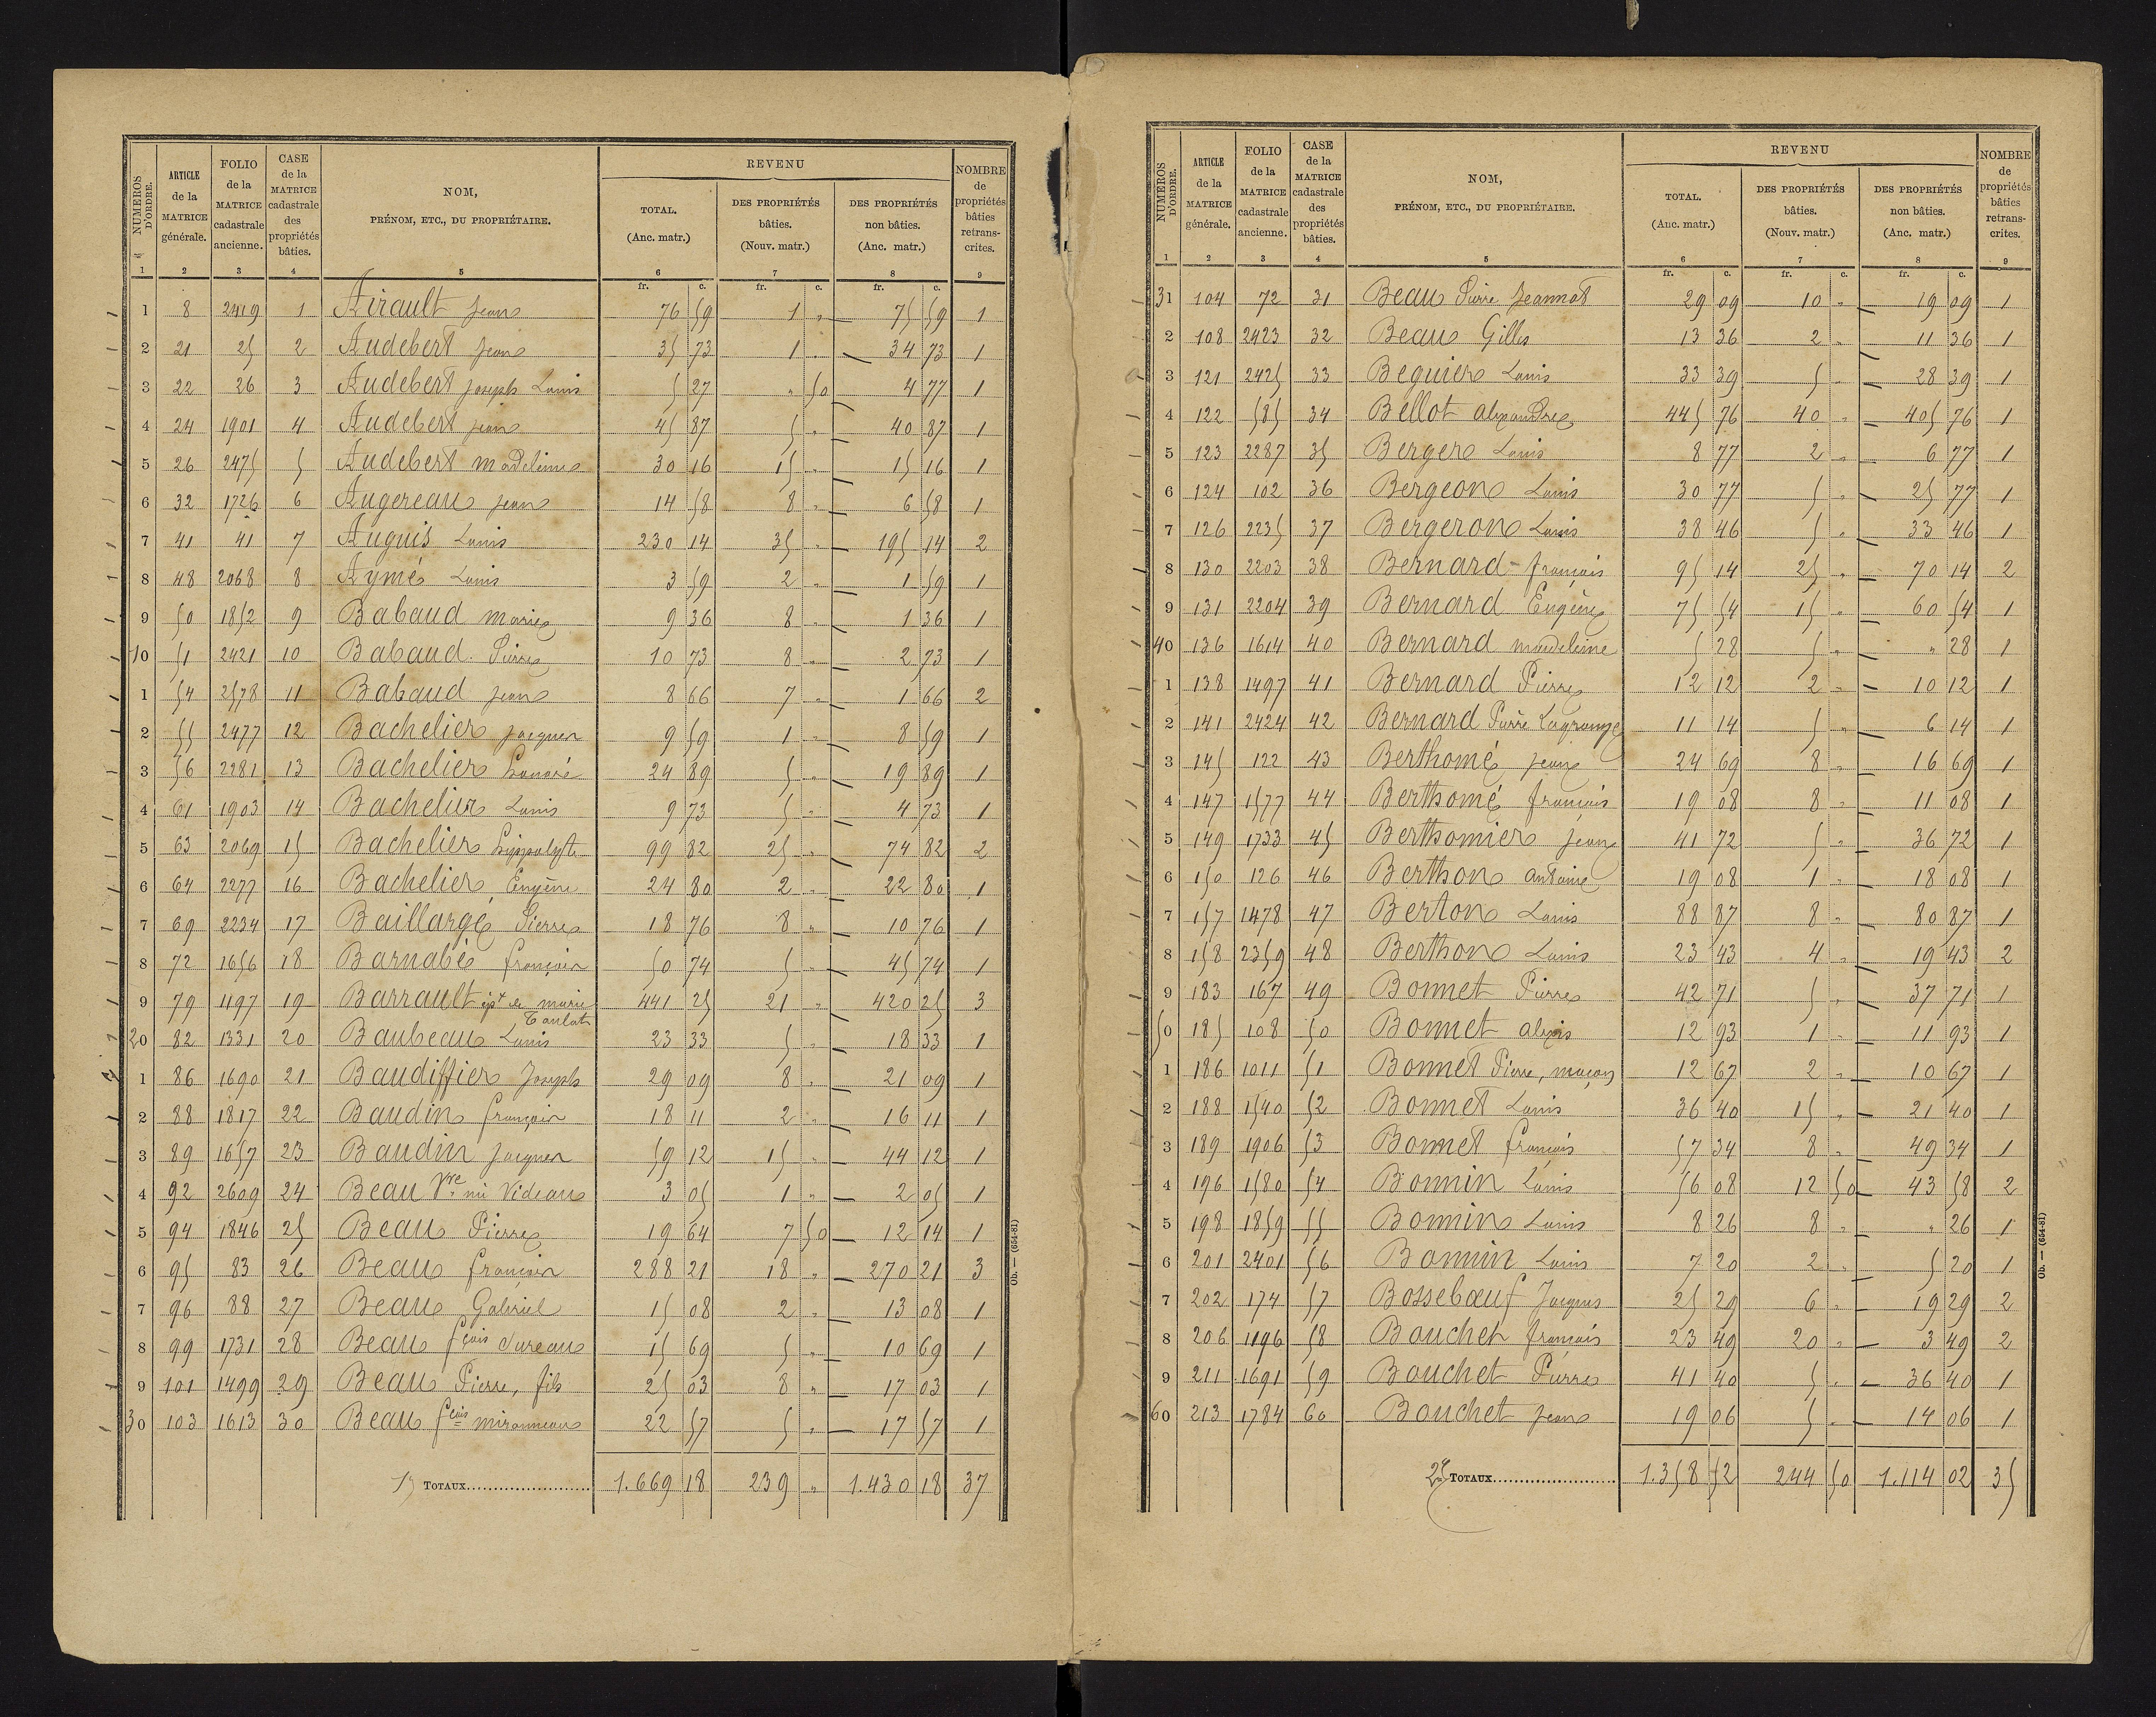 NUMÉROS D'ORDRE. | ARTICLE de la MATRICE générale. | FOLIO de la MATRICE cadastrale ancienne. | CASE de la MATRICE cadastrale des propriétés bâties. | NOM, PRÉNOM, ETC., DU PROPRIÉTAIRE. | REVENU TOTAL. (Anc. matr.) | DES PROPRIÉTÉS bâties. (Nouv. matr.) | DES PROPRIÉTÉS non bâties. (Anc. matr.) | NOMBRE de propriétés bâties retrans-crites.
1 2 3 4 5 6 7 8 9
fr. c. fr. c. fr. c.
1 8 2419 1 Airault Jean 76 59 1 " 75 59 1
2 21 25 2 Audebert Jean 35 73 1 " 34 73 1
3 22 26 3 Audebert Joseph Louis 5 27 " 50 4 77 1
4 24 1901 4 Audebert Jean 45 87 5 " 40 87 1
5 26 2475 5 Audebert Madeleine 30 16 15 " 15 16 1
6 32 1726 6 Augereau Jean 14 58 8 " 6 58 1
7 41 41 7 Auguis Louis 230 14 35 " 195 14 2
8 48 2068 8 Aymé Louis 3 59 2 " 1 59 1
9 50 1852 9 Babaud Marie 9 36 8 " 1 36 1
10 51 2421 10 Babaud Pierre 10 73 8 " 2 73 1
1 54 2578 11 Babaud Jean 8 66 7 " 1 66 2
2 55 2477 12 Bachelier Jacques 9 59 1 " 8 59 1
3 56 2281 13 Bachelier honoré 24 89 5 " 19 89 1
4 61 1903 14 Bachelier Louis 9 73 5 " 4 73 1
5 63 2069 15 Bachelier hippolyte 99 82 25 " 74 82 2
6 64 2277 16 Bachelier Eugène 24 80 2 " 22 80 1
7 69 2234 17 Baillargé Pierre 18 76 8 " 10 76 1
8 72 1656 18 Barnabé françois 50 74 5 " 45 74 1
9 79 1197 19 Barrault ept de marie 441 25 21 " 420 25 3
Toulat
20 82 1331 20 Baubeau Louis 23 33 5 " 18 33 1
1 86 1690 21 Baudiffier Joseph 29 09 8 " 21 09 1
2 88 1817 22 Baudin françois 18 11 2 " 16 11 1
3 89 1657 23 Baudin Jacques 59 12 15 " 44 12 1
4 92 2609 24 Beau Vve née Videau 3 05 1 " 2 05 1
5 94 1846 25 Beau Pierre 19 64 7 50 12 14 1
6 95 83 26 Beau françois 288 21 18 " 270 21 3
7 96 88 27 Beau Gabriel 15 08 2 " 13 08 1
8 99 1731 28 Beau fçois Sureau 15 69 5 " 10 69 1
9 101 1499 29 Beau Pierre, fils 25 03 8 " 17 03 1
30 103 1613 30 Beau fçois mironneau 22 57 5 " 17 57 1
TOTAUX 1.669 18 239 " 1.430 18 37
Ob. — (654-81)
NUMÉROS D'ORDRE. | ARTICLE de la MATRICE générale. | FOLIO de la MATRICE cadastrale ancienne. | CASE de la MATRICE cadastrale des propriétés bâties. | NOM, PRÉNOM, ETC., DU PROPRIÉTAIRE. | REVENU TOTAL. (Anc. matr.) | DES PROPRIÉTÉS bâties. (Nouv. matr.) | DES PROPRIÉTÉS non bâties. (Anc. matr.) | NOMBRE de propriétés bâties retrans-crites.
1 2 3 4 5 6 7 8 9
fr. c. fr. c. fr. c.
31 104 72 31 Beau Pierre Jeannot 29 09 10 " 19 09 1
2 108 2423 32 Beau Gilles 13 36 2 " 11 36 1
3 121 2425 33 Beguier Louis 33 39 5 " 28 39 1
4 122 585 34 Bellot alexandre 445 76 40 " 405 76 1
5 123 2287 35 Berger Louis 8 77 2 " 6 77 1
6 124 102 36 Bergeon Louis 30 77 5 " 25 77 1
7 126 2235 37 Bergeron Louis 38 46 5 " 33 46 1
8 130 2203 38 Bernard françois 95 14 25 " 70 14 2
9 131 2204 39 Bernard Eugène 75 54 15 " 60 54 1
40 136 1614 40 Bernard madeleine 5 28 5 " " 28 1
1 138 1497 41 Bernard Pierre 12 12 2 " 10 12 1
2 141 2424 42 Bernard Pierre Lagrange 11 14 5 " 6 14 1
3 145 122 43 Berthomé Jean 24 69 8 " 16 69 1
4 147 1577 44 Berthomé françois 19 08 8 " 11 08 1
5 149 1733 45 Berthomier Jean 41 72 5 " 36 72 1
6 150 126 46 Berthon antoine 19 08 1 " 18 08 1
7 157 1478 47 Berton Louis 88 87 8 " 80 87 1
8 158 2359 48 Berthon Louis 23 43 4 " 19 43 2
9 183 167 49 Bonnet Pierre 42 71 5 " 37 71 1
50 185 108 50 Bonnet alexis 12 93 1 " 11 93 1
1 186 1011 51 Bonnet Pierre, maçon 12 67 2 " 10 67 1
2 188 1540 52 Bonnet Louis 36 40 15 " 21 40 1
3 189 1906 53 Bonnet françois 57 34 8 " 49 34 1
4 196 1580 54 Bonnin Louis 56 08 12 50 43 58 2
5 198 1859 55 Bonnin Louis 8 26 8 " " 26 1
6 201 2401 56 Bonnin Louis 7 20 2 " 5 20 1
7 202 174 57 Bosseboeuf Jacques 25 29 6 " 19 29 2
8 206 1196 58 Bouchet françois 23 49 20 " 3 49 2
9 211 1691 59 Bouchet Pierre 41 40 5 " 36 40 1
60 213 1784 60 Bouchet Jean 19 06 5 " 14 06 1
TOTAUX 1.358 52 244 50 1.114 02 35
Ob. — (654-81)